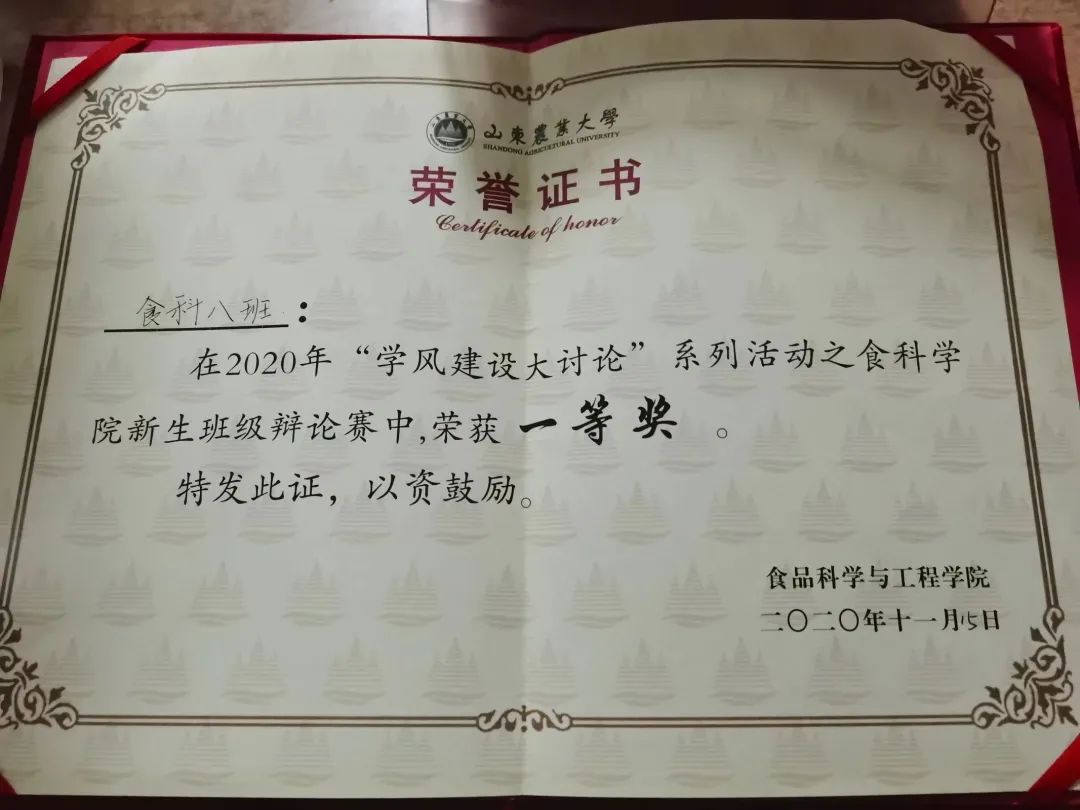 山東農業大學
SHANDONG AGRICULTURAL UNIVERSITY
荣誉证书
Certificate of honor
食科八班：
在2020年“学风建设大讨论”系列活动之食科学
院新生班级辩论赛中,荣获 一等奖 。
特发此证，以资鼓励。
食品科学与工程学院
二〇二〇年十一月15日